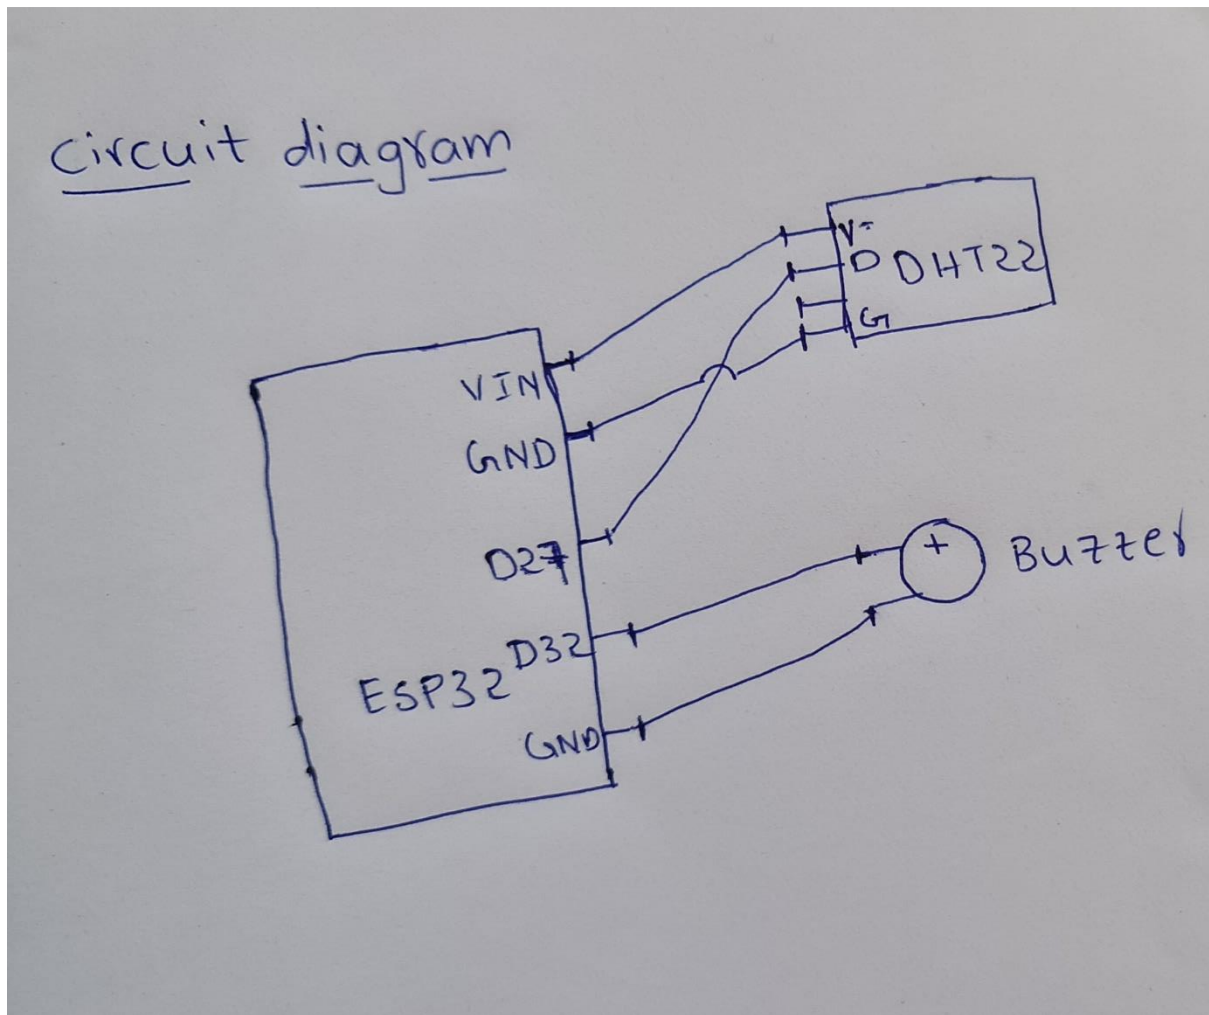 circuit diagram
V-
D DHT22
G
VIN
GND
D27
D32
ESP32
GND
+ Buzzer